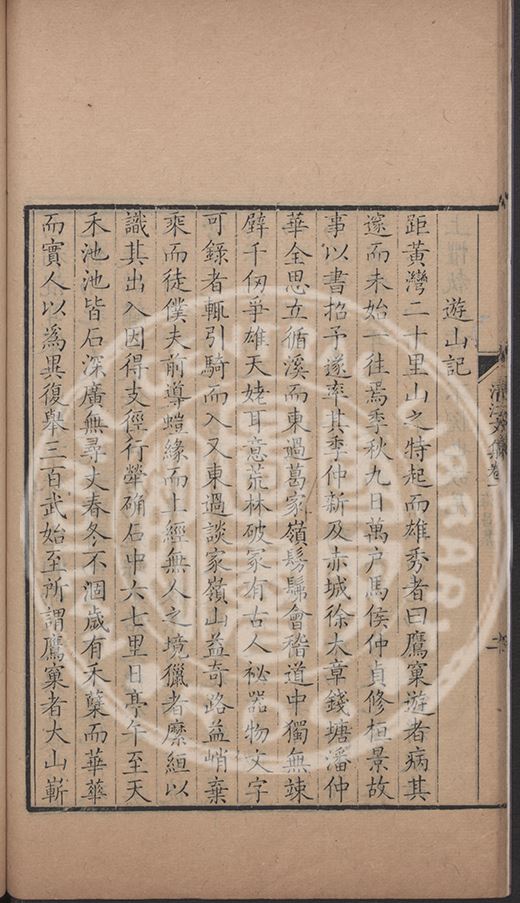 遊山記
距黃灣二十里山之特起而雄秀者曰鷹窠遊者病其
邃而未始一往焉季秋九日萬户馬侯仲貞修桓景故
事以書招予遂率其季仲新及赤城徐大章錢塘潘仲
華全思立循溪而東過葛家嶺髣髴會稽道中獨無竦
壁千仞爭雄天姥耳意荒林破冢有古人祕器物文字
可錄者輒引騎而入又東過談家嶺山益奇路益峭棄
乘而徒僕夫前導螘緣而上經無人之境獵者縻絙以
識其出入因得支徑行犖确石中六七里日亭午至天
禾池池皆石深廣無尋丈春冬不涸歲有禾蘖而華華
而實人以爲異復舉三百武始至所謂鷹窠者大山嶄
清江文集卷